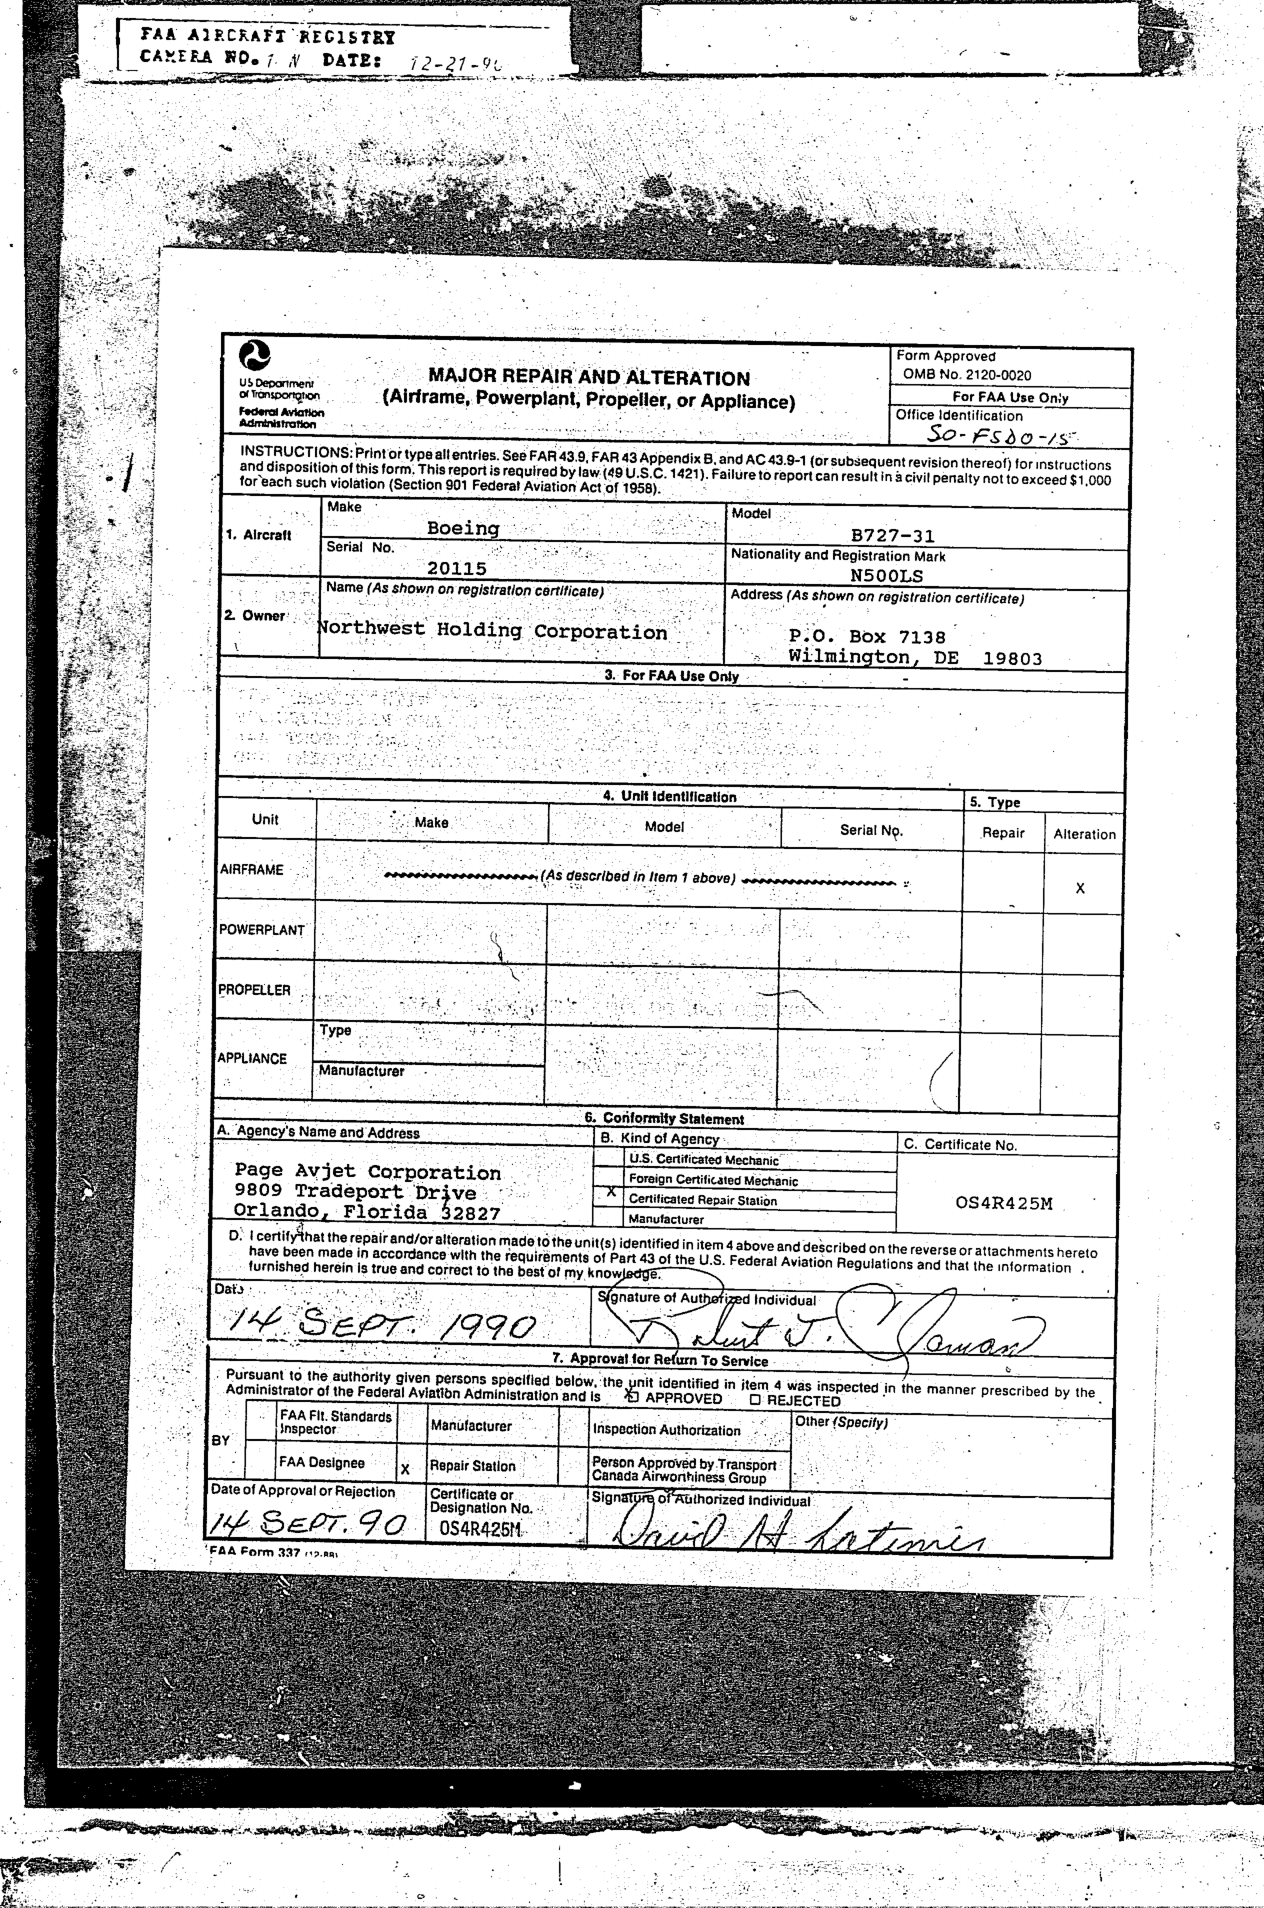 FAA AIRCRAFT REGISTRY
CAMERA NO. 1 N DATE: 12-21-90
US Department
of Transportation
Federal Aviation
Administration
MAJOR REPAIR AND ALTERATION
(Airframe, Powerplant, Propeller, or Appliance)
Form Approved
OMB No. 2120-0020
For FAA Use Only
Office Identification
SO-FSDO-15
INSTRUCTIONS: Print or type all entries. See FAR 43.9, FAR 43 Appendix B, and AC 43.9-1 (or subsequent revision thereof) for instructions
and disposition of this form. This report is required by law (49 U.S.C. 1421). Failure to report can result in a civil penalty not to exceed $1,000
for each such violation (Section 901 Federal Aviation Act of 1958).
1. Aircraft
Make
Boeing
Model
B727-31
Serial No.
20115
Nationality and Registration Mark
N500LS
2. Owner
Name (As shown on registration certificate)
Northwest Holding Corporation
Address (As shown on registration certificate)
P.O. Box 7138
Wilmington, DE 19803
3. For FAA Use Only
4. Unit Identification
5. Type
Unit
Make
Model
Serial No.
Repair
Alteration
AIRFRAME
(As described in Item 1 above)
X
POWERPLANT
PROPELLER
APPLIANCE
Type
Manufacturer
6. Conformity Statement
A. Agency's Name and Address
B. Kind of Agency
C. Certificate No.
Page Avjet Corporation
9809 Tradeport Drive
Orlando, Florida 32827
U.S. Certificated Mechanic
Foreign Certificated Mechanic
X Certificated Repair Station
Manufacturer
OS4R425M
D. I certify that the repair and/or alteration made to the unit(s) identified in item 4 above and described on the reverse or attachments hereto
have been made in accordance with the requirements of Part 43 of the U.S. Federal Aviation Regulations and that the information
furnished herein is true and correct to the best of my knowledge.
Date
14 SEPT. 1990
Signature of Authorized Individual
7. Approval for Return To Service
Pursuant to the authority given persons specified below, the unit identified in item 4 was inspected in the manner prescribed by the
Administrator of the Federal Aviation Administration and is X APPROVED ☐ REJECTED
BY
FAA Flt. Standards
Inspector
Manufacturer
Inspection Authorization
Other (Specify)
FAA Designee
X Repair Station
Person Approved by Transport
Canada Airworthiness Group
Date of Approval or Rejection
14 SEPT. 90
Certificate or
Designation No.
OS4R425M
Signature of Authorized Individual
David H Latimer
FAA Form 337 (12-88)